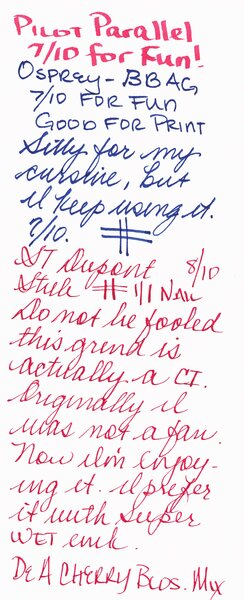 PILOT Parallel
7/10 for Fun!
OSPREY - BBAG
7/10 FOR FUN
GOOD FOR PRINT
Silly for my
cursive, but
I'll keep using it.
7/10.
ST Dupont 8/10
Stub 1/1 Naw
Do not be fooled
this grind is
actually a CI.
Originally I
was not a fan.
Now I'm enjoy-
ing it. I prefer
it with super
WET ink.
DeA CHERRY BLOS. Mix